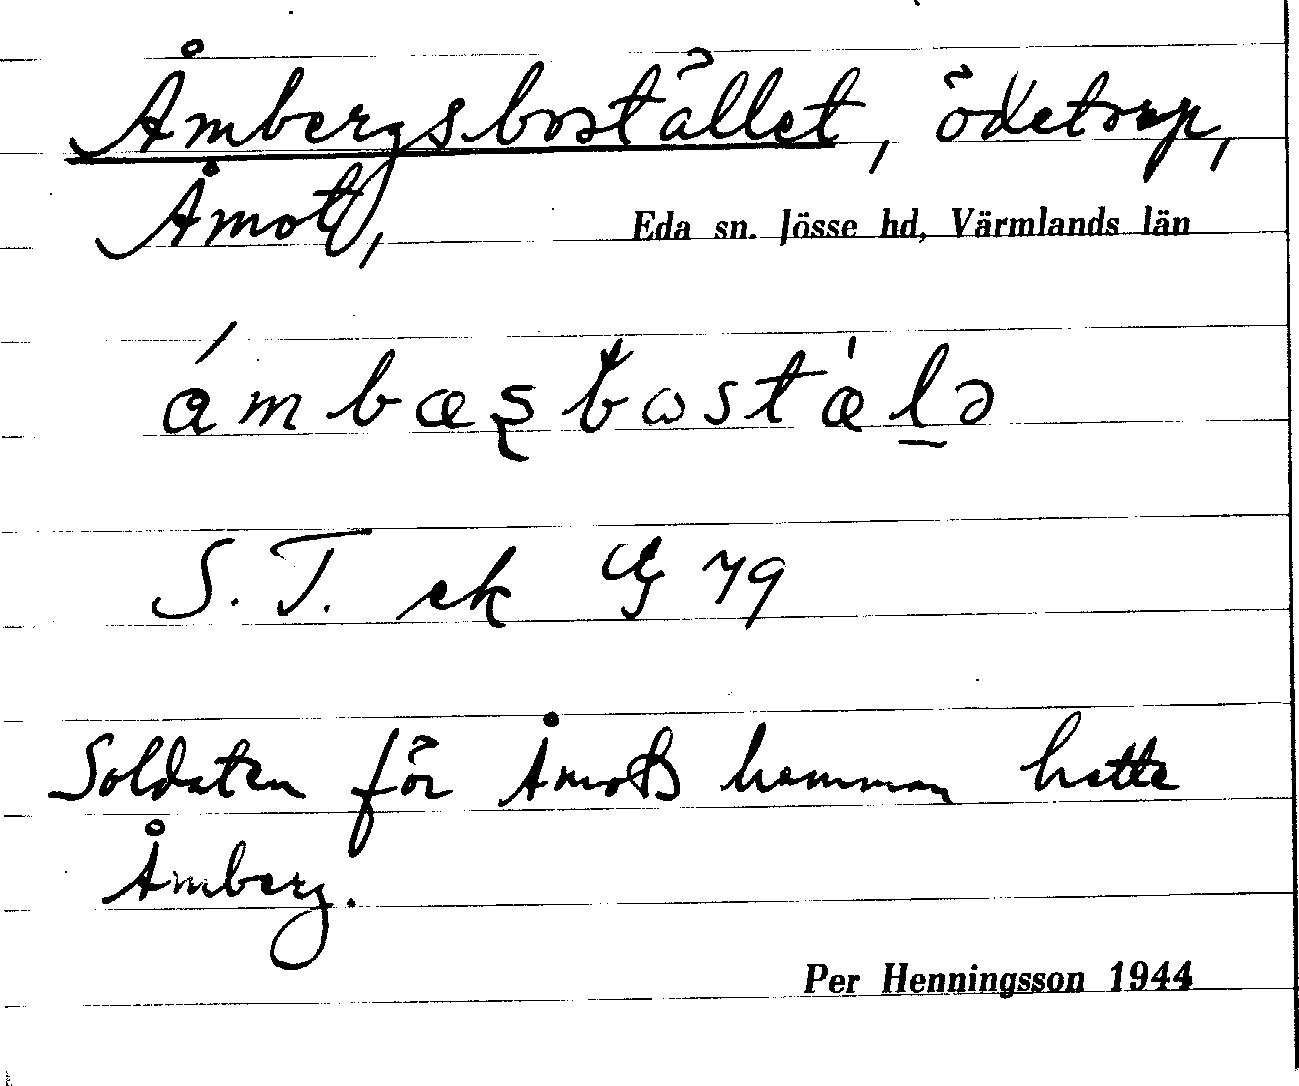 Åmbergsbostället, ödetorp,
Åmot, Eda sn. Jösse hd, Värmlands län
S. T. ek
Soldaten för Åmots hemman hette
Åmberg.
Per Henningsson 1944